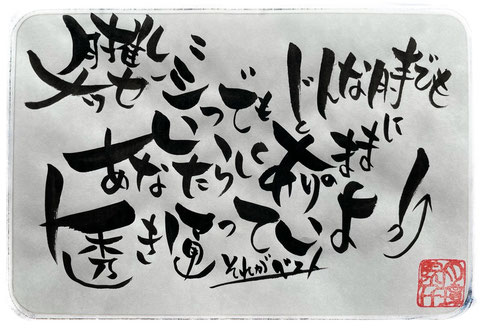 メッセージ
いつでも どんな時でも
あなたらしく ありのままに
透き通っていよう
それがベスト